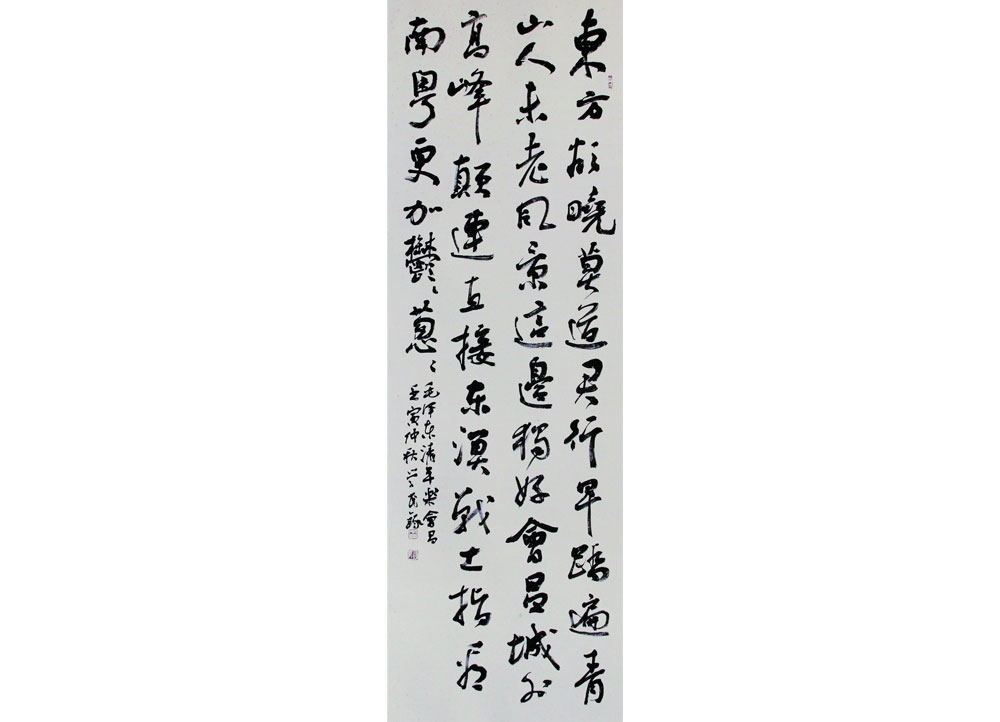 東方欲曉莫道君行早踏遍青
山人未老风景這邊獨好會昌城外
高峰顛連直接东溟戰士指看
南粵更加鬱〻蔥〻
毛泽东清平樂會昌
壬寅仲秋 民錄